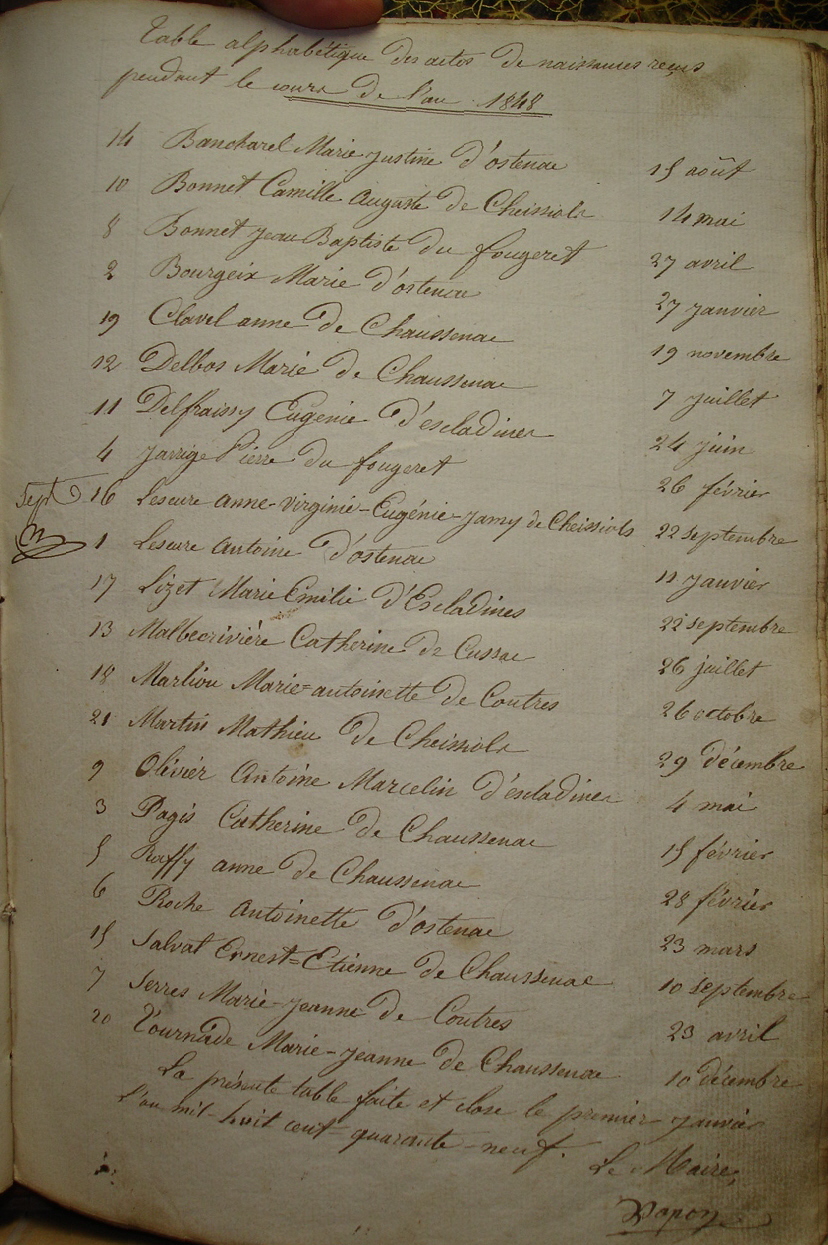 Table alphabétique des actes de naissances reçus
pendant le cours de l'an 1848
14 Bancharel Marie Justine d'ostenac 15 août
10 Bonnet Camille Auguste de Cheissiols 14 mai
8 Bonnet Jean Baptiste du fougeret 27 avril
2 Bourgeix Marie d'ostenac 27 janvier
19 Clavel anne de Chaussenac 19 novembre
12 Delbos Marie de Chaussenac 7 juillet
11 Delfraissy Eugenie d'escladines 24 juin
4 Jarrige Pierre du fougeret 26 février
Sept 16 Lescure anne-virginie-Eugénie-Jamy de Cheissiols 22 septembre
1 Lescure Antoine d'ostenac 11 janvier
17 Lizet Marie Emilie d'Escladines 22 septembre
13 Malbecrivière Catherine de Cussac 26 juillet
18 Marliou Marie=antoinette de Contres 26 octobre
21 Martin Mathieu de Cheissiols 29 décembre
9 Olivier Antoine Marcelin d'escladines 4 mai
3 Pagis Catherine de Chaussenac 15 février
5 Raffy anne de Chaussenac 28 février
6 Roche Antoinette d'ostenac 23 mars
15 Salvat Ernest=Etienne de Chaussenac 10 septembre
7 Serres Marie-jeanne de Contres 23 avril
20 Tournade Marie-jeanne de Chaussenac 10 décembre
La présente table faite et close le premier janvier
l'an mil-huit cent-quarante-neuf.
Le Maire,